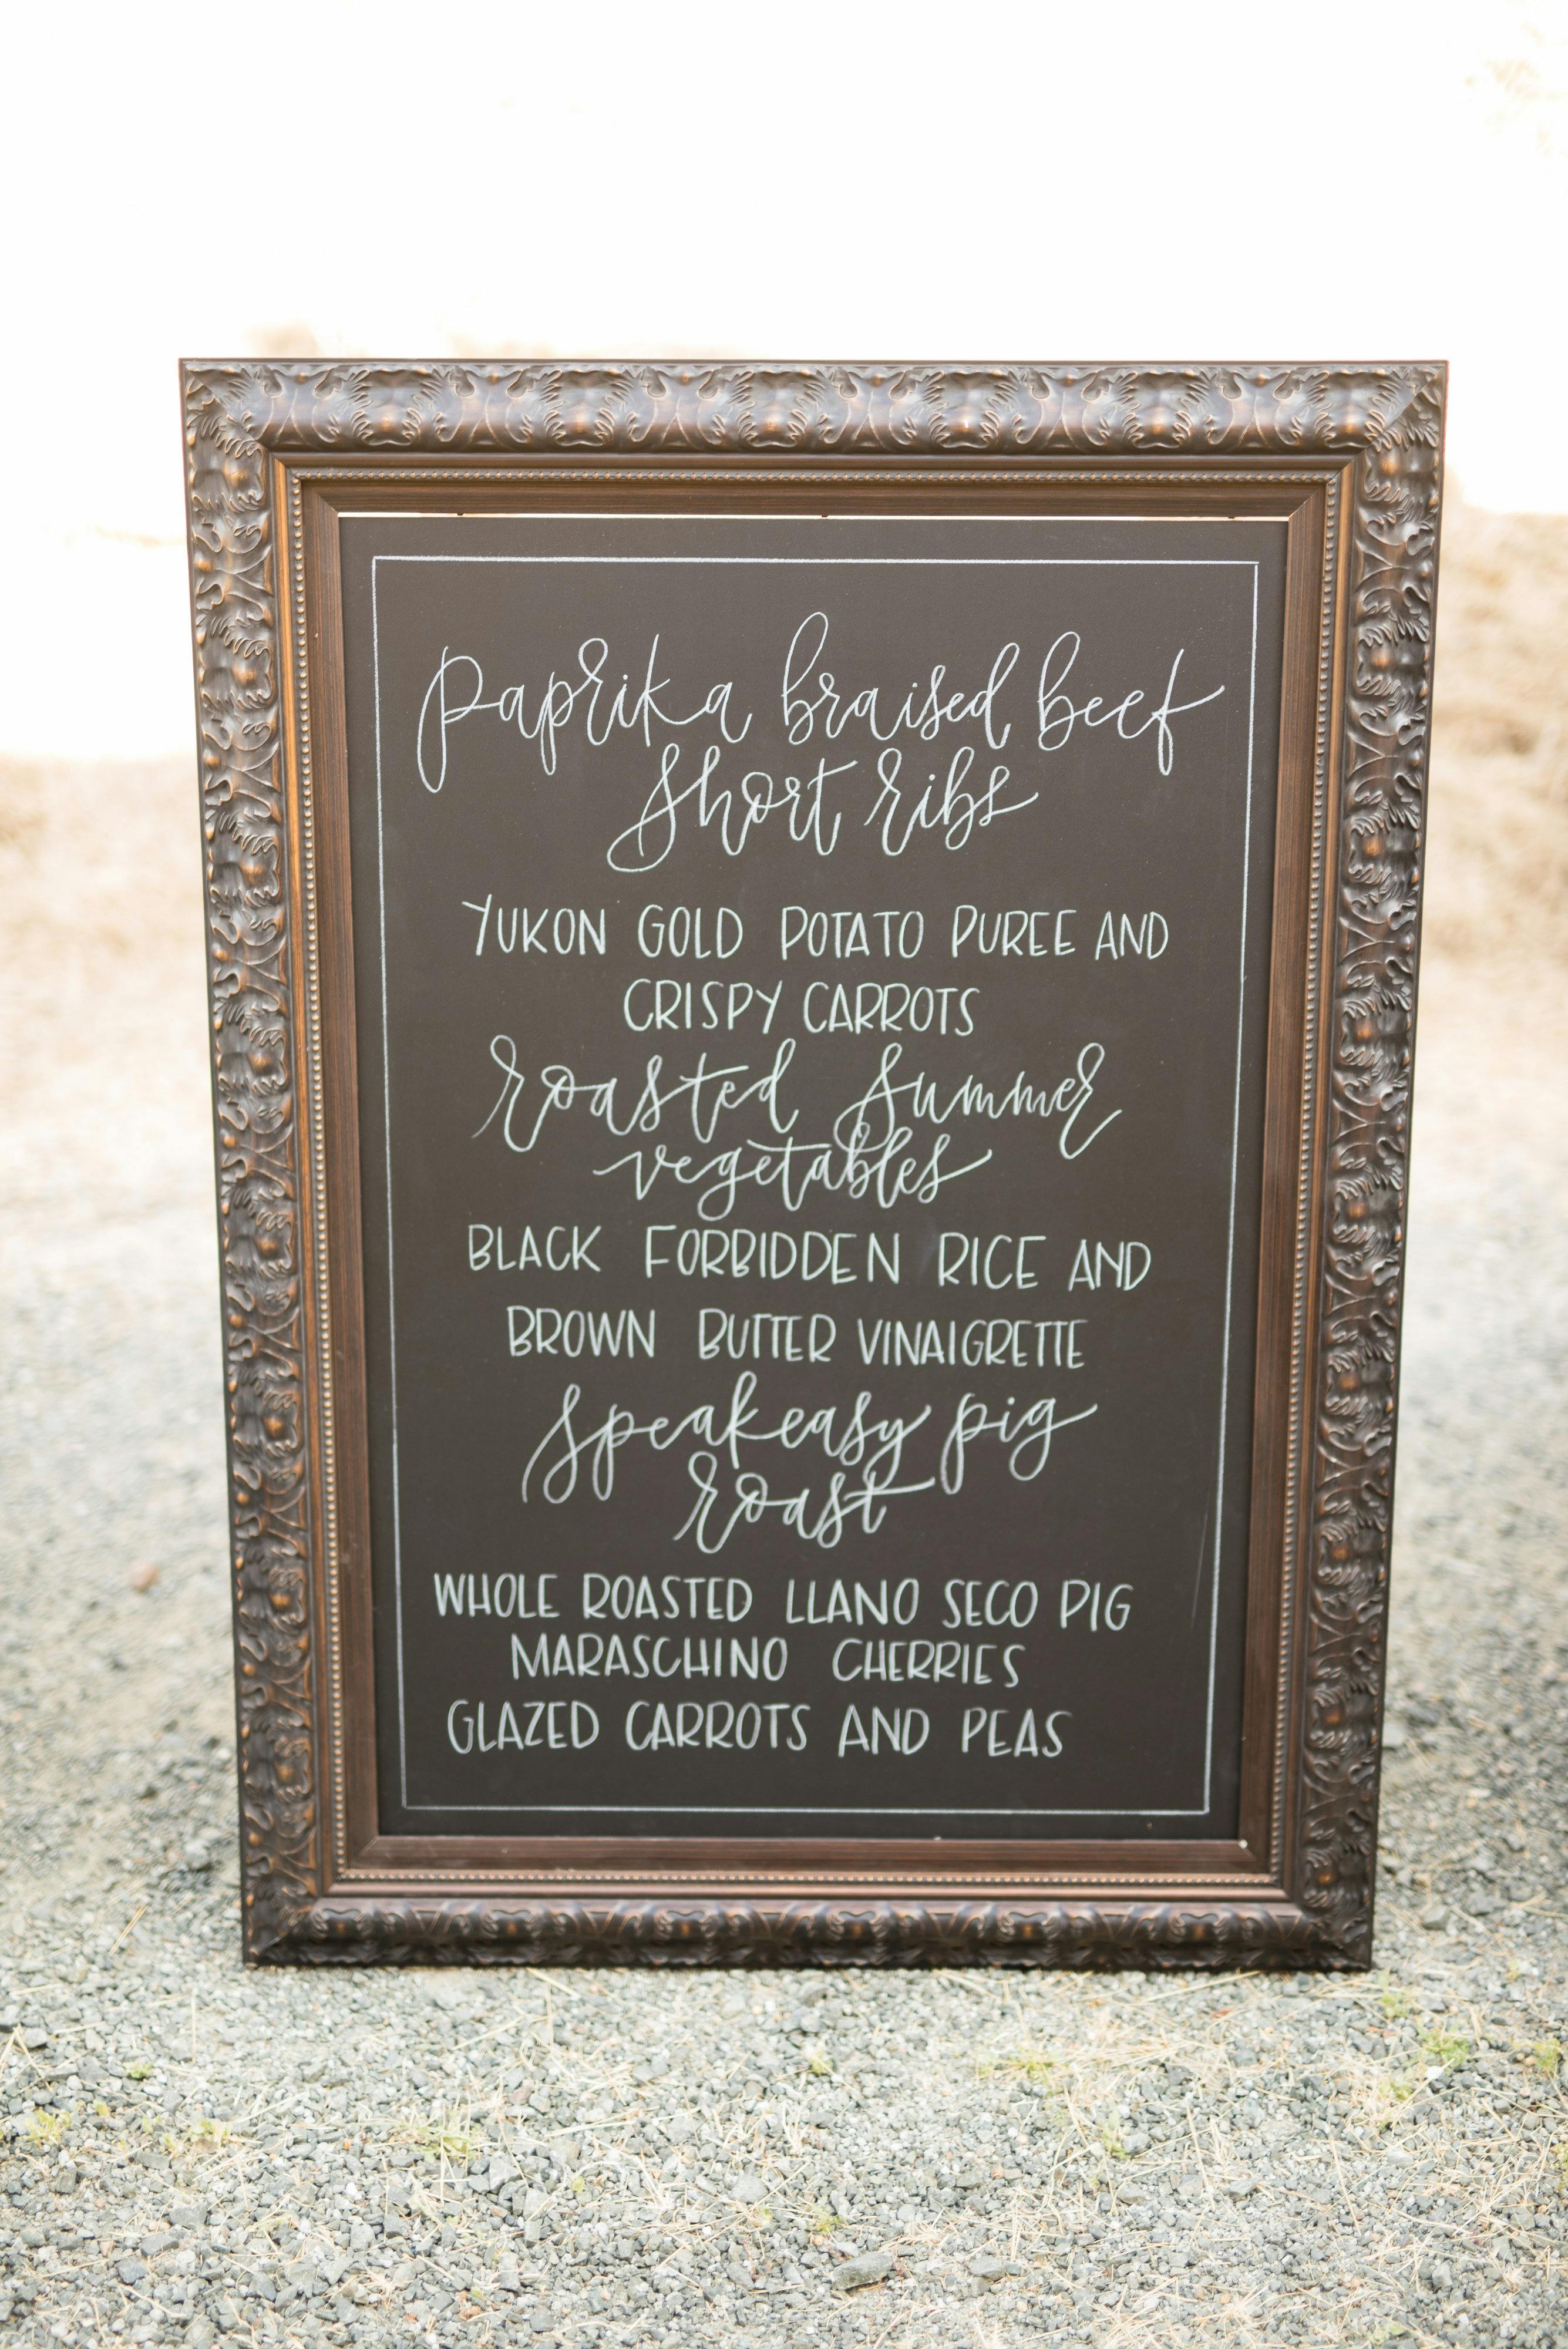 paprika braised beef
short ribs
YUKON GOLD POTATO PUREE AND
CRISPY CARROTS
roasted summer
vegetables
BLACK FORBIDDEN RICE AND
BROWN BUTTER VINAIGRETTE
speakeasy pig
roast
WHOLE ROASTED LLANO SECO PIG
MARASCHINO CHERRIES
GLAZED CARROTS AND PEAS